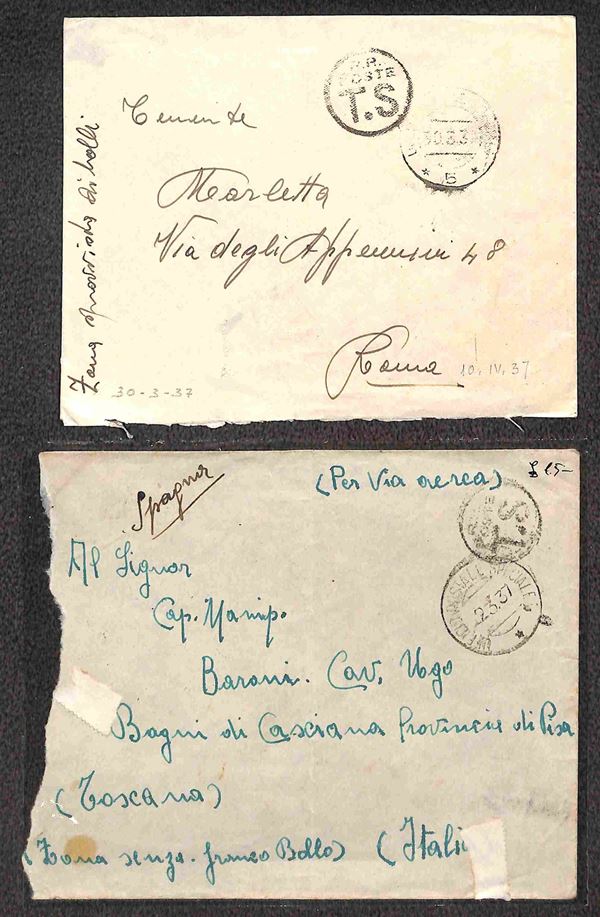 R.R.
POSTE
T.S
30.3.3
* 5 *
Tenente
Marletta
Via degli Appennini 48
Roma
10.IV.37
Zona sprovvista di bolli
30-3-37
Spagna
(Per Via aerea)
£ 25-
POSTE
T.S
UFFICIO POSTALE SPECIALE
2.3.37
Al Signor
Cap. Manip.
Baroni. Cav. Ugo
Bagni di Casciana Provincia di Pisa
(Toscana)
(Zona senza franco Bollo) (Itali